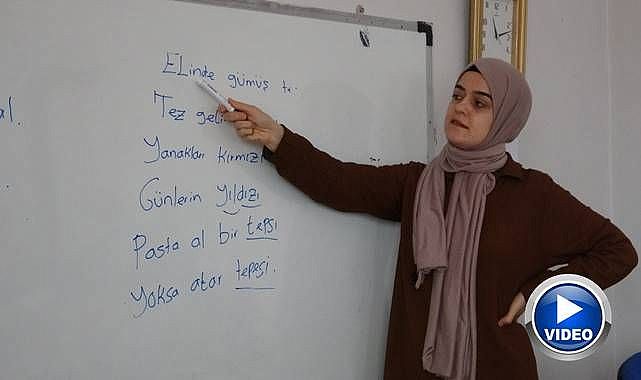 ELinde gümüş
al.
Tez
Yanakları
Günlerin yıldızı
Pasta al bir tepsi
Yoksa atar tepesi.
VIDEO